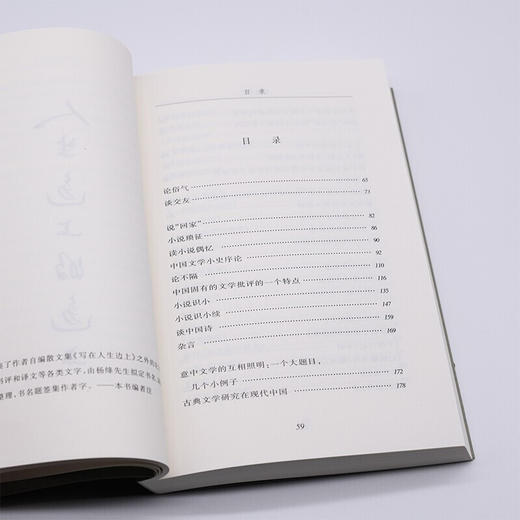 人生边上的边上
了作者自编散文集《写在人生边上》之外的
书评和译文等各类文字，由杨绛先生拟定书名，
整理，书名题签集作者字。——本书编者注
目录
目录
论俗气 65
谈交友 73
说“回家” 82
小说琐征 86
读小说偶忆 90
中国文学小史序论 92
论不隔 110
中国固有的文学批评的一个特点 116
小说识小 135
小说识小续 147
谈中国诗 159
杂言 169
意中文学的互相照明：一个大题目，
几个小例子 172
古典文学研究在现代中国 178
59